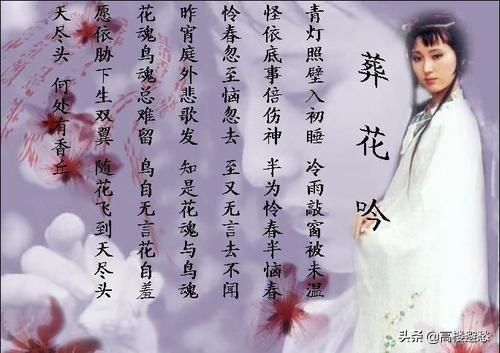 葬花吟
青灯照壁人初睡 冷雨敲窗被未温
怪依底事倍伤神 半为怜春半恼春
怜春忽至恼忽去 至又无言去不闻
昨宵庭外悲歌发 知是花魂与鸟魂
花魂鸟魂总难留 鸟自无言花自羞
愿依胁下生双翼 随花飞到天尽头
天尽头 何处有香丘
头条 @高楼避愁